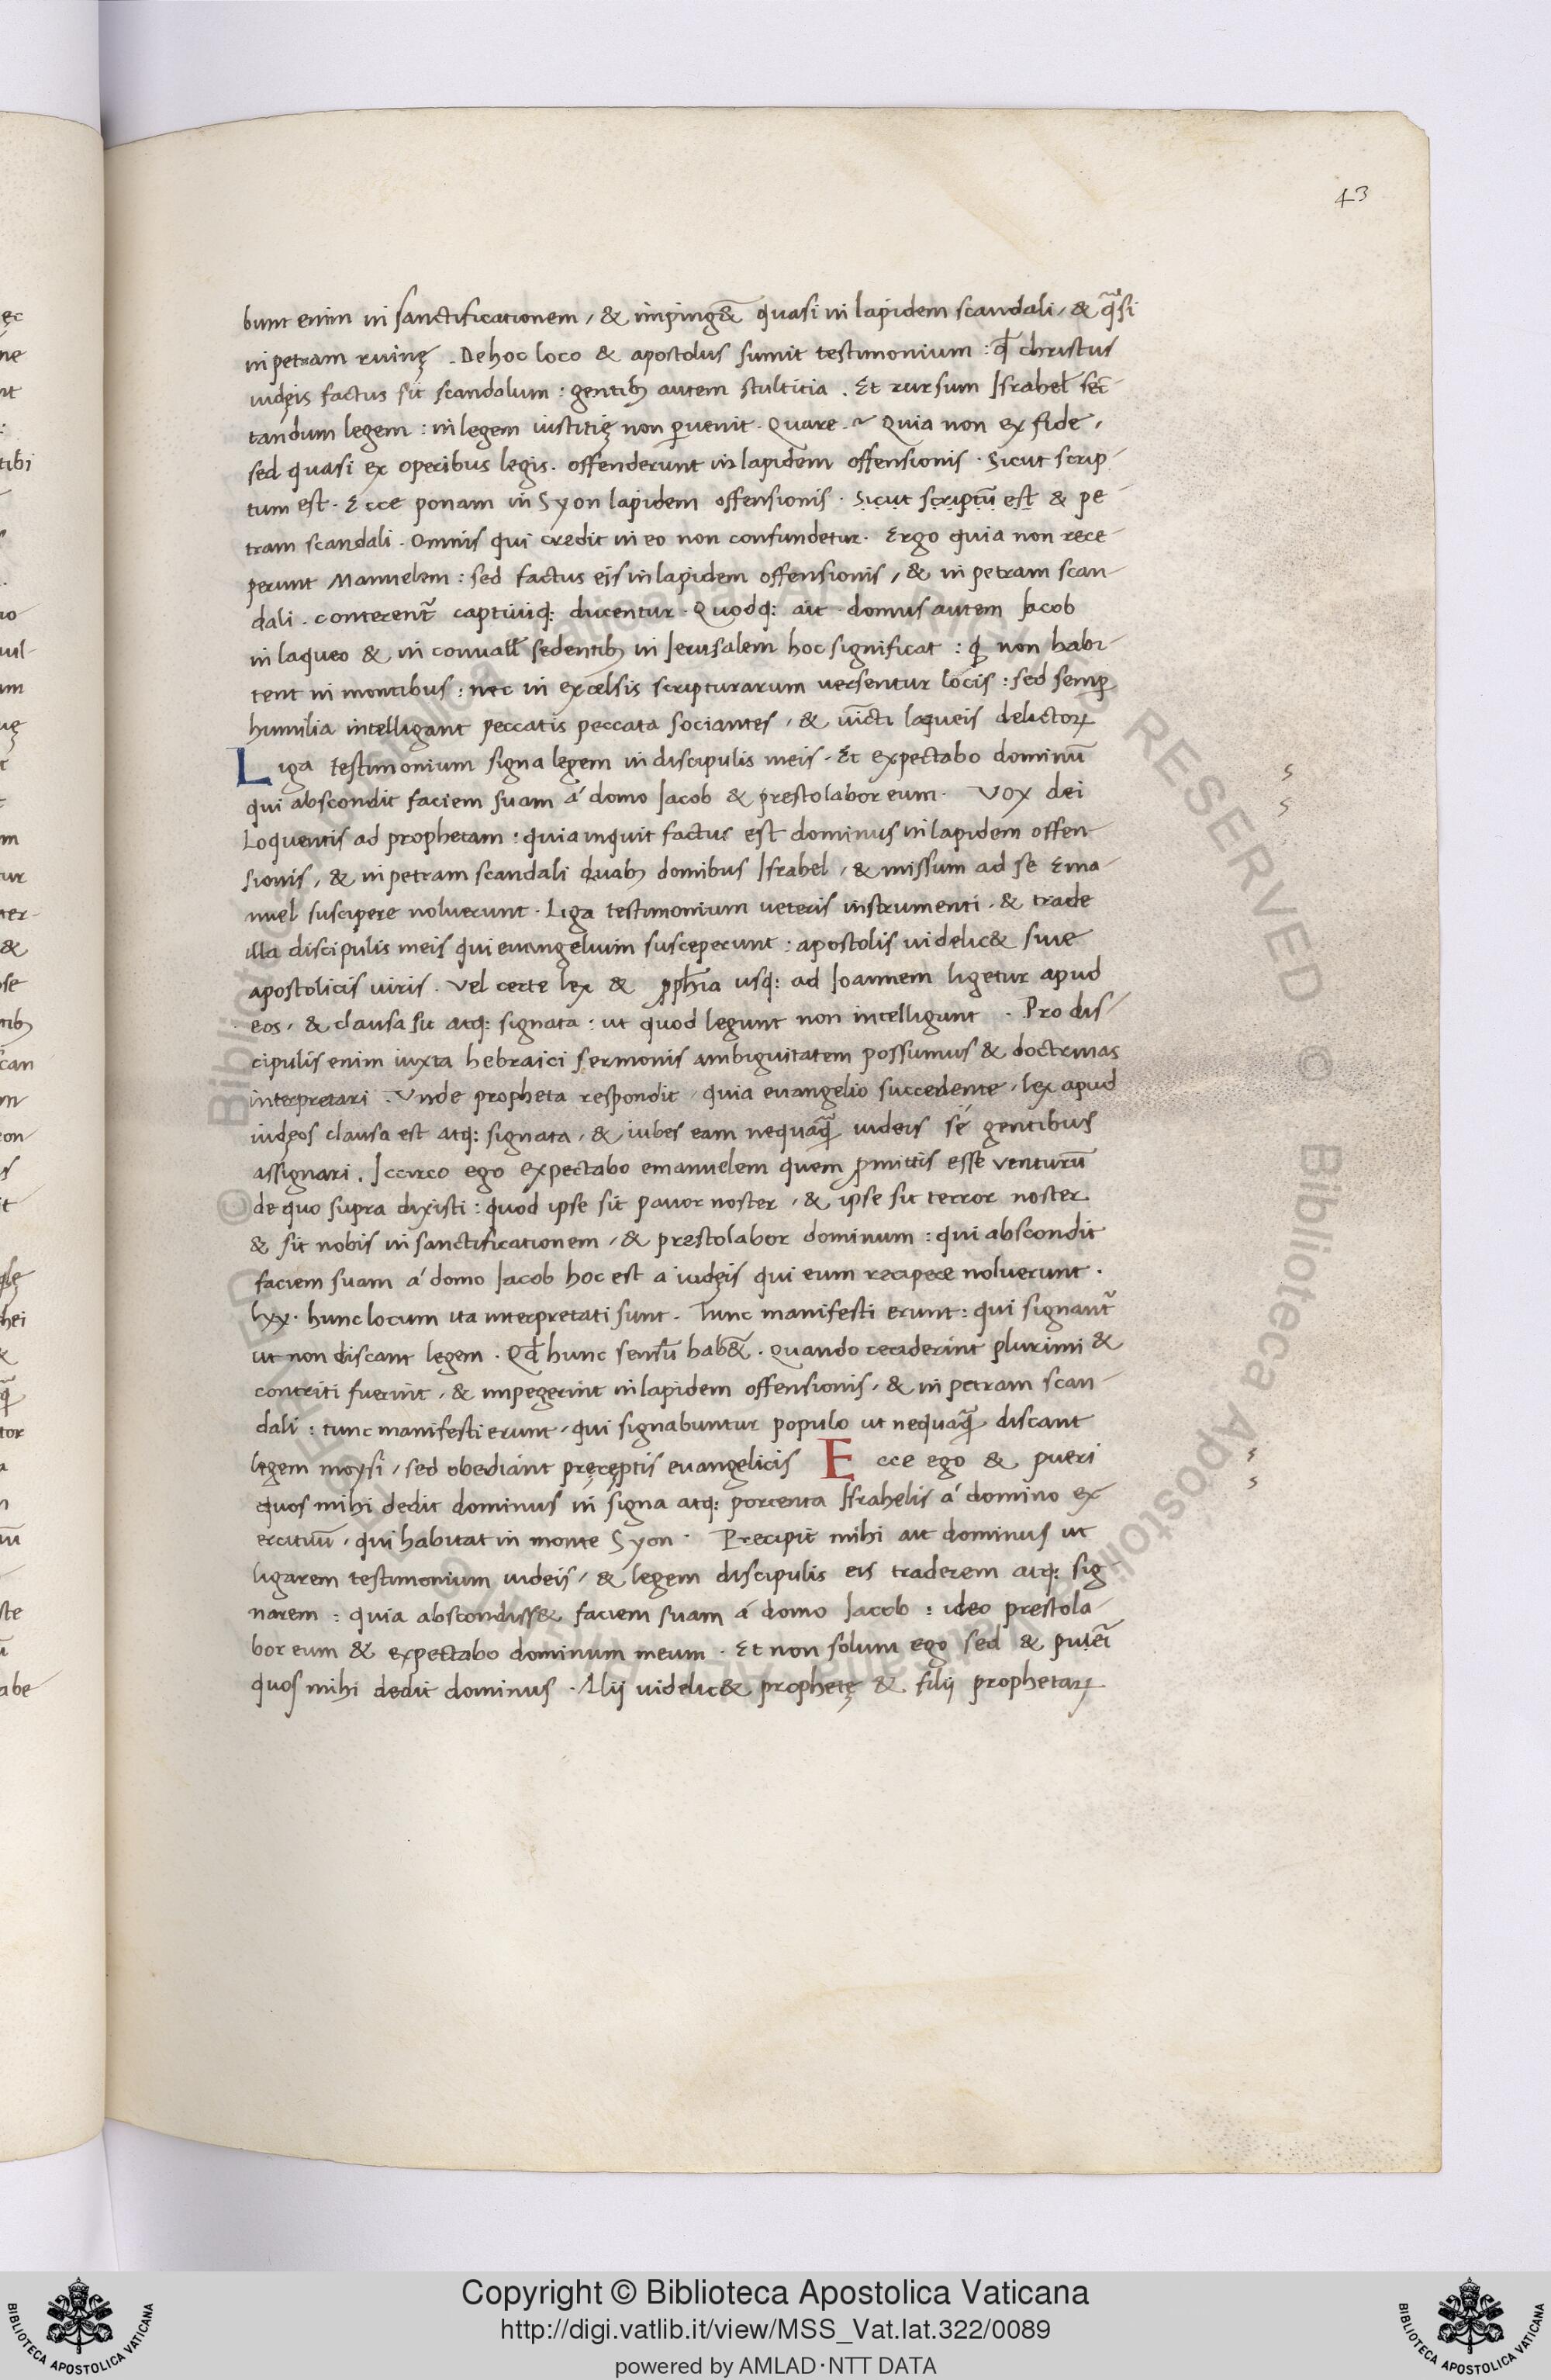 43
bunt enim in sanctificationem, & imping&̄ quasi in lapidem scandali, & q̃si
in petram ruinę . De hoc loco & apostolus sumit testimonium : qđ christus
iudęis factus sit scandalum : gentibꝫ autem stulticia . Et rursum Israhel sec̄-
tandum legem : in legem iustitię non ꝑuenit . Quare .~ Quia non ex fide,
sed quasi ex operibus legis. offenderunt in lapidem offensionis . Sicut scrip-
tum est . Ecce ponam in Syon lapidem offensionis . Ṣịc̣ụṭ ṣc̣ṛịp̣ṭụ̄ ẹṣṭ & pe-
tram scandali . Omnis qui credit in eo non confundetur . Ergo quia non rece-
perunt Manuelem : sed factus eis in lapidem offensionis, & in petram scan-
dali . conterent̃ captiuiq: ducentur . Quodq: ait . domus autem Jacob
in laqueo & in conuałł sedentibꝫ in Jerusalem hoc significat : ꝙ non habi-
tent in montibus : nec in excelsis scripturarum uersentur locis : sed semꝑ
humilia intelligant peccatis peccata sociantes, & uīcti laqueis delictoꝝ
Liga testimonium signa legem in discipulis meis . Et expectabo dominū
qui abscondit faciem suam á domo Jacob & prestolabor eum . Vox dei
Loquentis ad prophetam : quia inquit factus est dominus in lapidem offen-
sionis, & in petram scandali duabꝫ domibus Israhel, & missum ad se Ema-
nuel suscipere noluerunt . Liga testimonium ueteris instrumenti . & trade
illa discipulis meis qui euangelium susceperunt : apostolis uidelic& siue
apostolicis uiris . Vel certe lex & ꝓph̄ia usq: ad Joannem ligetur apud
eos, & clausa sit atq: signata : ut quod legunt non intelligant . Pro dis-
cipulis enim iuxta hebraici sermonis ambiguitatem possumus & doctrinas
interpretari . Vnde propheta respondit, quia euangelio succedente, lex apud
iudęos clausa est atq: signata, & iubes eam nequaꝗ̃ iudeis sé gentibus
assignari . Jccirco ego expectabo emanuelem quem ꝓmittis esse venturū
de quo supra dixisti : quod ipse sit pauor noster, & ipse sit terror noster
& sit nobis in sanctificationem, & prestolabor dominum : qui abscondit
faciem suam á domo Jacob hoc est a iudęis qui eum recipere noluerunt .
lxx . hunc locum ita interpretati sunt . Tunc manifesti erunt : qui signant̃
ut non discant legem . Qđ hunc sensū hab&̄ . Quando ceciderint plurimi &
contriti fuerint, & impegerint in lapidem offensionis, & in petram scan-
dali : tunc manifesti erunt, qui signabuntur populo ut nequaꝗ̃ discant
legem moysi, sed obediant pręcęptis euangelicis Ecce ego & pueri
quos mihi dedit dominus in signa atq: portenta Israhelis á domino ex
ercituū, qui habitat in monte Syon . Precipit mihi ait dominus ut
ligarem testimonium iudeis, & legem discipulis eis traderem atq: sig-
narem : quia abscondiss& faciem suam á domo Jacob : ideo prestola-
bor eum & expectabo dominum meum . Et non solum ego sed &
quos mihi dedit dominus . Alij uidelic& prophetę & filij prophetaꝝ
Copyright © Biblioteca Apostolica Vaticana
http://digi.vatlib.it/view/MSS_Vat.lat.322/0089
powered by AMLAD·NTT DATA
BIBLIOTECA APOSTOLICA VATICANA
BIBLIOTECA APOSTOLICA VATICANA